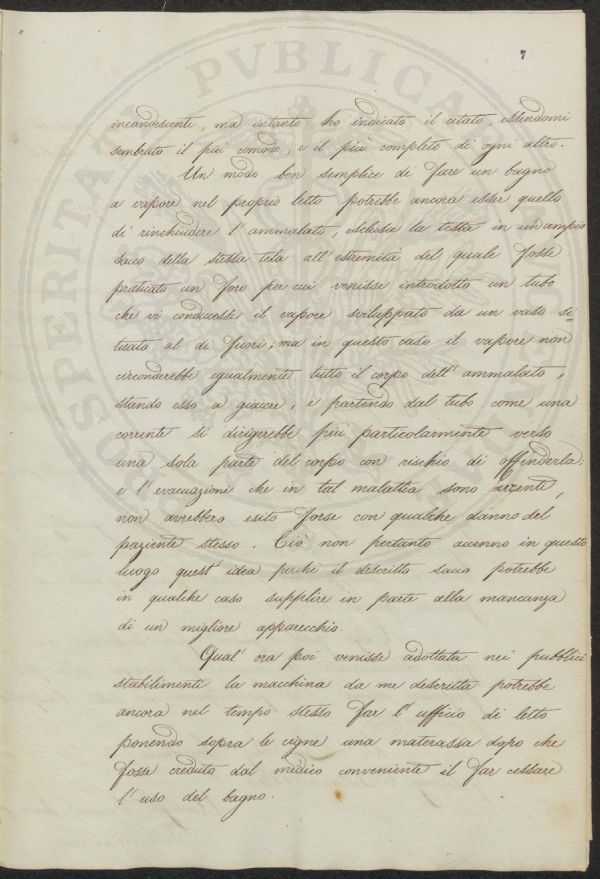 7
incandescente, ma intanto ho indicato il citato, essendomi
sembrato il più comodo, e il più completo di ogni altro.
Un modo ben semplice di fare un bagno
a vapore nel proprio letto potrebbe ancora esser quello
di rinchiudere l'ammalato, esclusa la testa in un ampio
sacco della stessa tela all'estremità del quale fosse
praticato un foro per cui venisse introdotto un tubo
che vi conducesse il vapore sviluppato da un vaso si
tuato al di fuori; ma in questo caso il vapore non
circonderebbe egualmente tutto il corpo dell'ammalato,
stando esso a giacere, e partendo dal tubo come una
corrente si dirigerebbe più particolarmente verso
una sola parte del corpo con rischio di offenderla;
e l'evacuazioni che in tal malattia sono
non avrebbero esito forse con qualche danno del
paziente stesso. Ciò non pertanto accenno in questo
luogo quest'idea perchè il descritto sacco potrebbe
in qualche caso supplire in parte alla mancanza
di un migliore apparecchio.
Qual'ora poi venisse adottata nei pubblici
stabilimenti la macchina da me descritta potrebbe
ancora nel tempo stesso far l'ufficio di letto
ponendo sopra le cigne una materassa dopo che
fosse creduto dal medico conveniente il far cessare
l'uso del bagno.